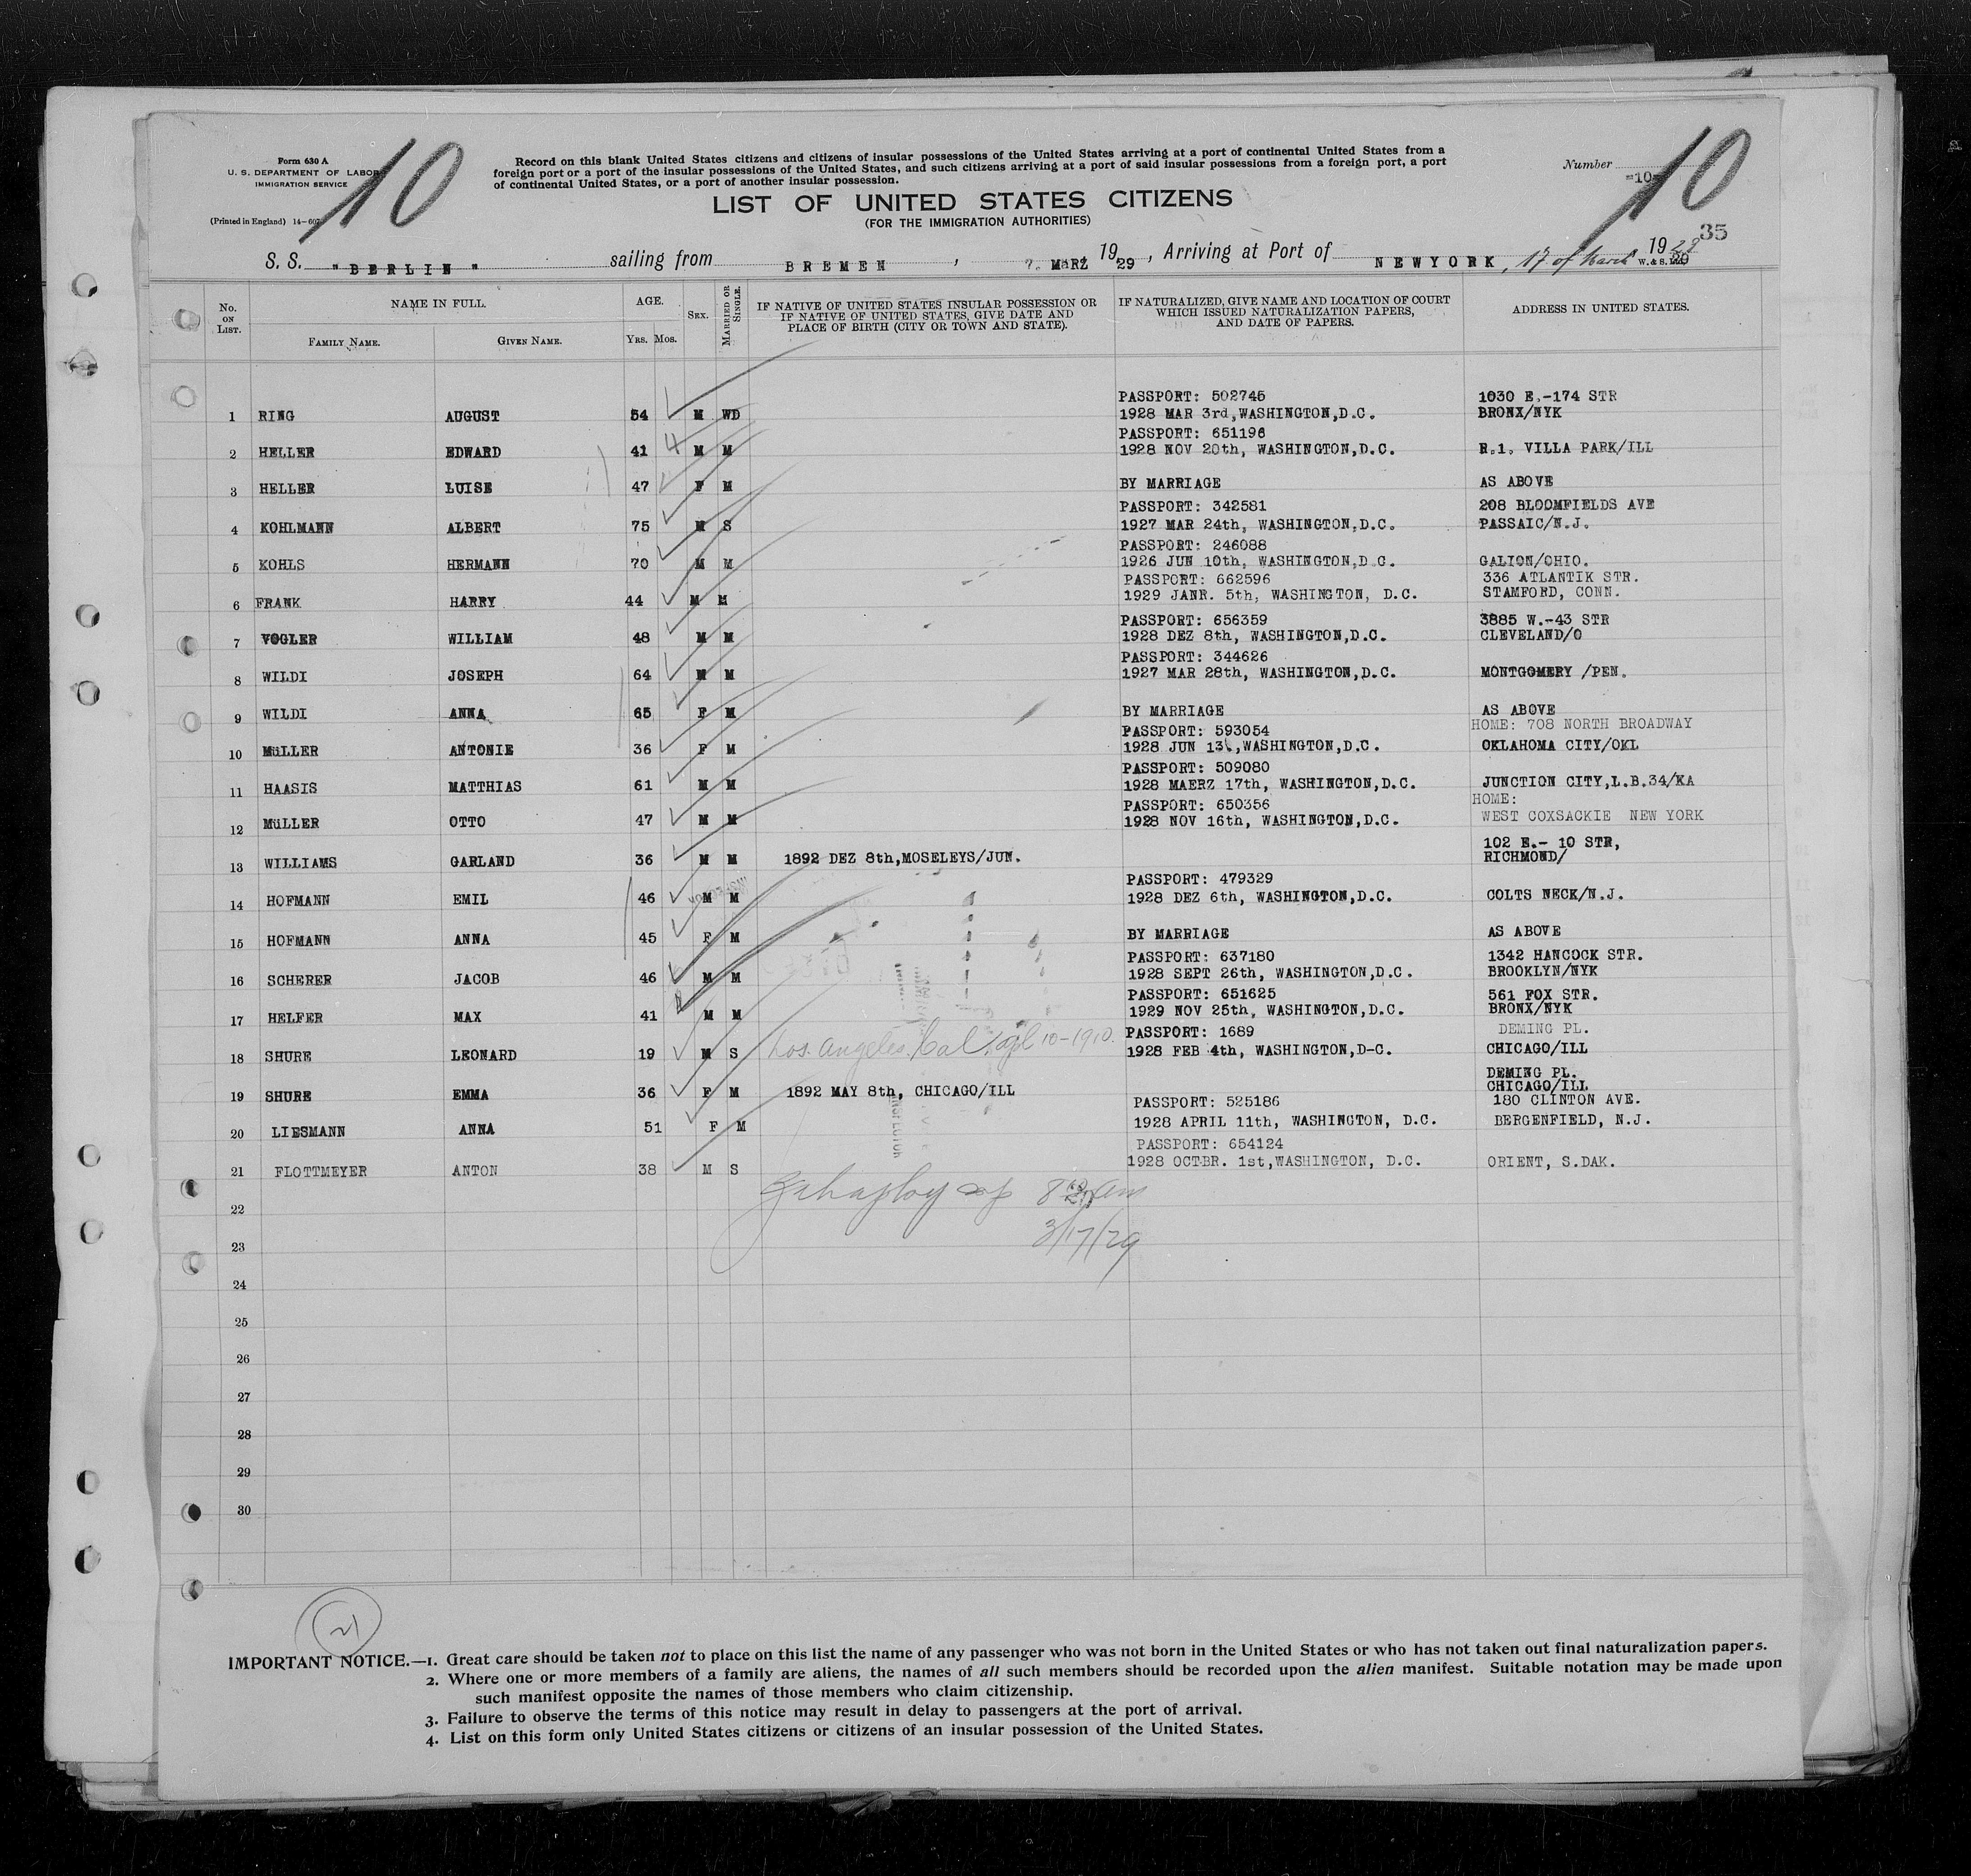 Form 630 A
U. S. DEPARTMENT OF LABOR
IMMIGRATION SERVICE
(Printed in England) 14-607
10
Record on this blank United States citizens and citizens of insular possessions of the United States arriving at a port of continental United States from a
foreign port or a port of the insular possessions of the United States, and such citizens arriving at a port of said insular possessions from a foreign port, a port
of continental United States, or a port of another insular possession.
LIST OF UNITED STATES CITIZENS
(FOR THE IMMIGRATION AUTHORITIES)
Number
=10=
10
35
S. S. "BERLIN" sailing from BREMEN, 7. MäRZ 1929, Arriving at Port of NEWYORK, 17 of March 1929
W. & S. Ltd.
No. ON LIST. NAME IN FULL. AGE. SEX. MARRIED OR SINGLE. IF NATIVE OF UNITED STATES INSULAR POSSESSION OR IF NATIVE OF UNITED STATES, GIVE DATE AND PLACE OF BIRTH (CITY OR TOWN AND STATE). IF NATURALIZED, GIVE NAME AND LOCATION OF COURT WHICH ISSUED NATURALIZATION PAPERS, AND DATE OF PAPERS. ADDRESS IN UNITED STATES.
FAMILY NAME. GIVEN NAME. YRS. MOS.
PASSPORT: 502745 1030 E.-174 STR
1 RING AUGUST 54 M WD 1928 MAR 3rd,WASHINGTON,D.C. BRONX/NYK
PASSPORT: 651196
2 HELLER EDWARD 41 M M 1928 NOV 20th, WASHINGTON,D.C. R.1. VILLA PARK/ILL
3 HELLER LUISE 47 F M BY MARRIAGE AS ABOVE
PASSPORT: 342581 208 BLOOMFIELDS AVE
4 KOHLMANN ALBERT 75 M S 1927 MAR 24th, WASHINGTON,D.C. PASSAIC/N.J.
PASSPORT: 246088
5 KOHLS HERMANN 70 M M 1926 JUN 10th, WASHINGTON,D.C. GALION/OHIO.
PASSPORT: 662596 336 ATLANTIK STR.
6 FRANK HARRY 44 M M 1929 JANR. 5th, WASHINGTON, D.C. STAMFORD, CONN.
PASSPORT: 656359 3885 W.-43 STR
7 VOGLER WILLIAM 48 M M 1928 DEZ 8th, WASHINGTON,D.C. CLEVELAND/O
PASSPORT: 344626
8 WILDI JOSEPH 64 M M 1927 MAR 28th, WASHINGTON,D.C. MONTGOMERY /PEN.
9 WILDI ANNA 65 F M BY MARRIAGE AS ABOVE
PASSPORT: 593054 HOME: 708 NORTH BROADWAY
10 MüLLER ANTONIE 36 F M 1928 JUN 13t,WASHINGTON,D.C. OKLAHOMA CITY/OKL
PASSPORT: 509080
11 HAASIS MATTHIAS 61 M M 1928 MAERZ 17th, WASHINGTON,D.C. JUNCTION CITY,L.B.34/KA
PASSPORT: 650356 HOME:
12 MüLLER OTTO 47 M M 1928 NOV 16th, WASHINGTON,D.C. WEST COXSACKIE NEW YORK
102 E.- 10 STR,
13 WILLIAMS GARLAND 36 M M 1892 DEZ 8th,MOSELEYS/JUN. RICHMOND/
PASSPORT: 479329
14 HOFMANN EMIL 46 M M 1928 DEZ 6th, WASHINGTON,D.C. COLTS NECK/N.J.
15 HOFMANN ANNA 45 F M BY MARRIAGE AS ABOVE
PASSPORT: 637180 1342 HANCOCK STR.
16 SCHERER JACOB 46 M M 1928 SEPT 26th, WASHINGTON,D.C. BROOKLYN/NYK
PASSPORT: 651625 561 FOX STR.
17 HELFER MAX 41 M M 1929 NOV 25th, WASHINGTON,D.C. BRONX/NYK
PASSPORT: 1689 DEMING PL.
18 SHURE LEONARD 19 M S Los Angeles, Cal, apl 10-1910. 1928 FEB 4th, WASHINGTON,D-C. CHICAGO/ILL
DEMING PL.
19 SHURE EMMA 36 F M 1892 MAY 8th, CHICAGO/ILL CHICAGO/ILL
PASSPORT: 525186 180 CLINTON AVE.
20 LIESMANN ANNA 51 F M 1928 APRIL 11th, WASHINGTON, D.C. BERGENFIELD, N.J.
PASSPORT: 654124
21 FLOTTMEYER ANTON 38 M S 1928 OCTBR. 1st,WASHINGTON, D.C. ORIENT, S.DAK.
22
3/17/29
23
24
25
26
27
28
29
30
21
IMPORTANT NOTICE.—1. Great care should be taken not to place on this list the name of any passenger who was not born in the United States or who has not taken out final naturalization papers.
2. Where one or more members of a family are aliens, the names of all such members should be recorded upon the alien manifest. Suitable notation may be made upon
such manifest opposite the names of those members who claim citizenship.
3. Failure to observe the terms of this notice may result in delay to passengers at the port of arrival.
4. List on this form only United States citizens or citizens of an insular possession of the United States.